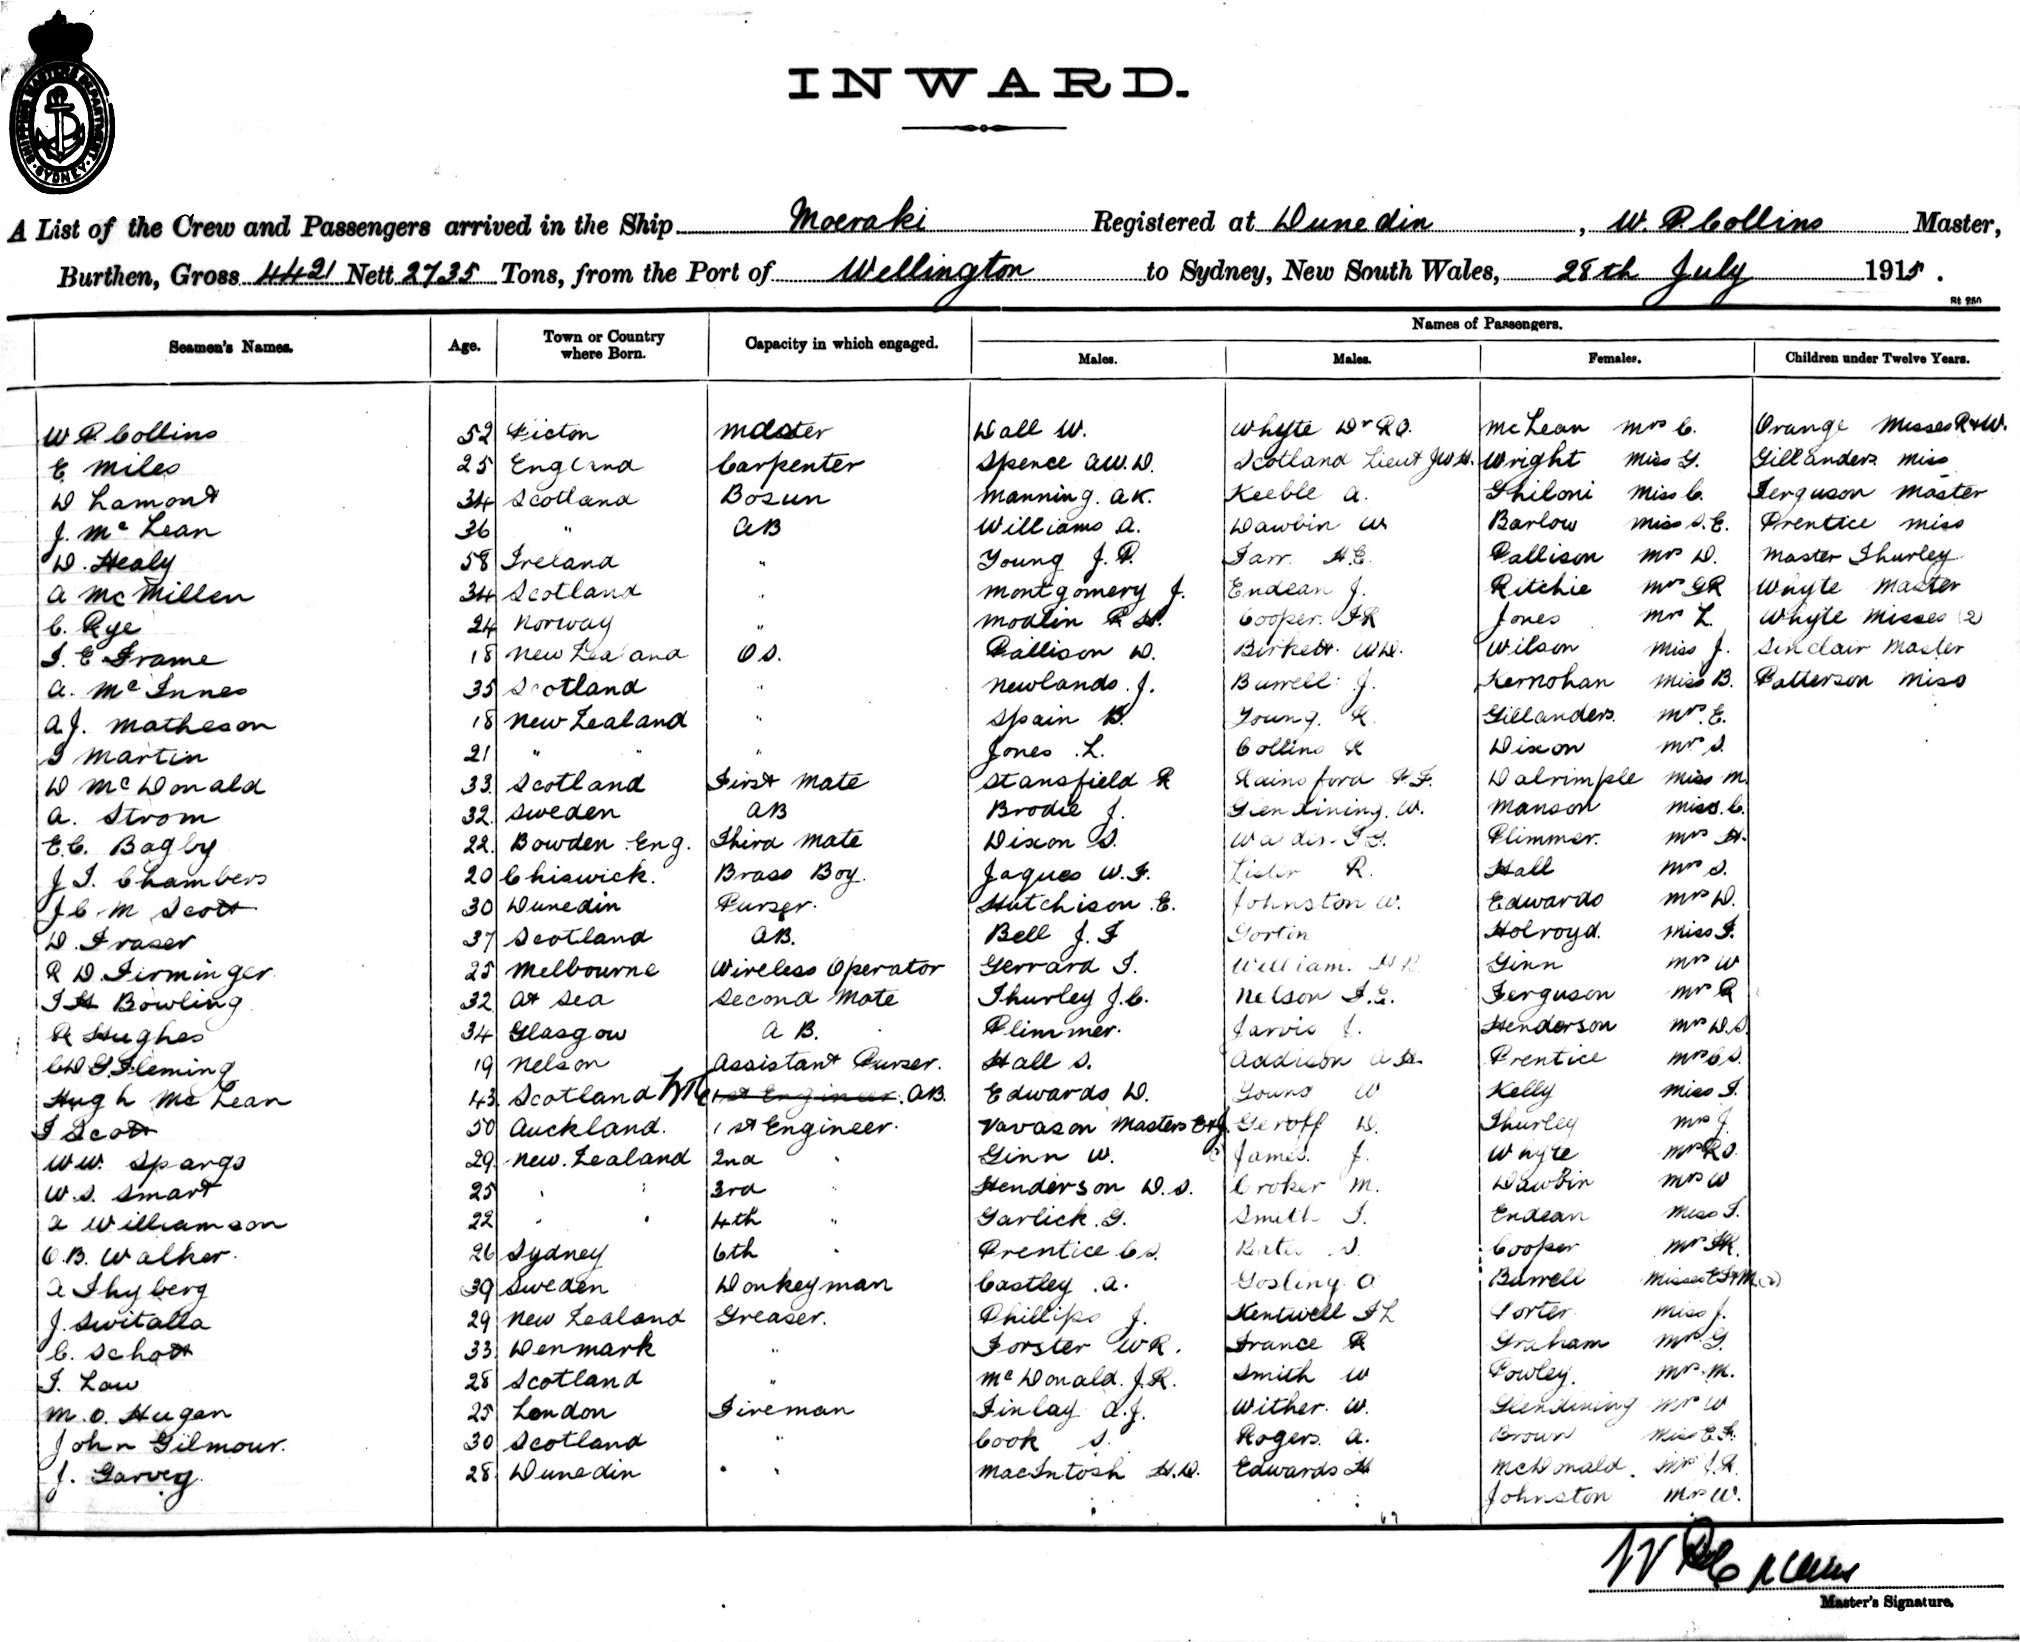 SHIPPING MASTERS DEPARTMENT
SYDNEY
INWARD.
A List of the Crew and Passengers arrived in the Ship Moeraki Registered at Dunedin, W. P. Collins Master,
Burthen, Gross 4421 Nett 2735 Tons, from the Port of Wellington to Sydney, New South Wales, 28th July 1915.
St 280
Seamen's Names. Age. Town or Country where Born. Capacity in which engaged. Names of Passengers.
Males. Males. Females. Children under Twelve Years.
W P Collins 52 Picton Master Dall W. Whyte Dr R O. McLean Mrs C. Orange Misses R & W.
E Miles 25 England Carpenter Spence A W. D. Scotland Lieut J W H. Wright Miss G. Gillanders Miss
D Lamont 34 Scotland Bosun Manning. A K. Keeble A. Ghiloni Miss C. Ferguson Master
J. McLean 36 " AB Williams A. Dawbin W Barlow Miss S. E. Prentice Miss
D. Healy 58 Ireland " Young J. P. Farr. H. E. Pallison Mrs D. Master Thurley
A McMillen 34 Scotland " Montgomery J. Endean J. Ritchie Mrs G R Whyte Master
C. Rye 24 Norway " Modlin R H. Cooper. F R Jones Mrs L Whyte Misses (2)
F. E Frame 18 New Zealand O S. Pallison D. Birkett. W D. Wilson Miss J. Sinclair Master
A. McInnes 35 Scotland " Newlands. J. Burrell J. Kernohan Miss B. Patterson Miss
A J. Matheson 18 New Zealand " Spain B. Young. R. Gillanders. Mrs. E.
Martin 21 " " " Jones L. Collins R Dixon Mrs S.
D McDonald 33. Scotland First Mate Stansfield R Rainsford F. Dalrimple Miss M.
A. Strom 32. Sweden AB Brodie J. Glendining. W. Manson Miss. C.
E. C. Bagby 22. Bowden Eng. Third Mate Dixon S. Plimmer. Mrs H.
J. T. Chambers 20 Chiswick. Brass Boy. Jaques W. F. Lister R. Hall Mrs S.
J C M Scott 30 Dunedin Purser. Hutchison. E. Johnston W. Edwards Mrs D.
D. Fraser 37 Scotland AB. Bell J. F Gortin Holroyd. Miss F.
R D Firminger 25 Melbourne Wireless Operator Gerrard T. William. H Ginn Mrs W
F H Bowling 32 At Sea Second Mate Thurley J. C. Nelson F. G. Ferguson Mrs R
R Hughes 34 Glasgow A B. Plimmer. Jarvis J. Henderson Mrs D. S.
C D G Fleming 19 Nelson Assistant Purser. Hall S. Addison A H. Prentice Mrs C S.
Hugh McLean 43. Scotland 1st Engineer. AB. Edwards D. Young W Kelly Miss F.
Scott 50 Auckland. 1st Engineer. Vavason Masters E & J. Geroff D. Thurley Mrs J.
W W. Spargo 29. New. Zealand 2nd " Ginn W. James. J. Whyte Mrs R O.
W. S. Smart 25 " " 3rd " Henderson D. S. Croker M. Dawbin Mrs W
A Williamson 22 " " 4th " Garlick. G. Smith F. Endean Miss F.
C. B. Walker. 26 Sydney 6th " Prentice C S. Bates S. Cooper Mrs F R.
A Thyberg 39 Sweden Donkeyman Castley. A. Gosling O Burrell Misses E F & M (2)
J. Switalla 29 New Zealand Greaser. Phillips J. Kentwell F L Porter. Miss J.
C. Schott 33. Denmark " Forster W R. France R Graham Mrs. G.
T. Law 28 Scotland " McDonald. J. R. Smith W Powley. Mrs. M.
M. O. Hugan 25 London Fireman Finlay A. J. Wither. W. Glendining Mrs W
John Gilmour. 30 Scotland " Cook S. Rogers A. Brown Miss E F.
J. Garvey. 28. Dunedin " " MacIntosh H. D. Edwards H McDonald. Mrs J. R.
Johnston Mrs W.
67
W P Collins
Master's Signature.